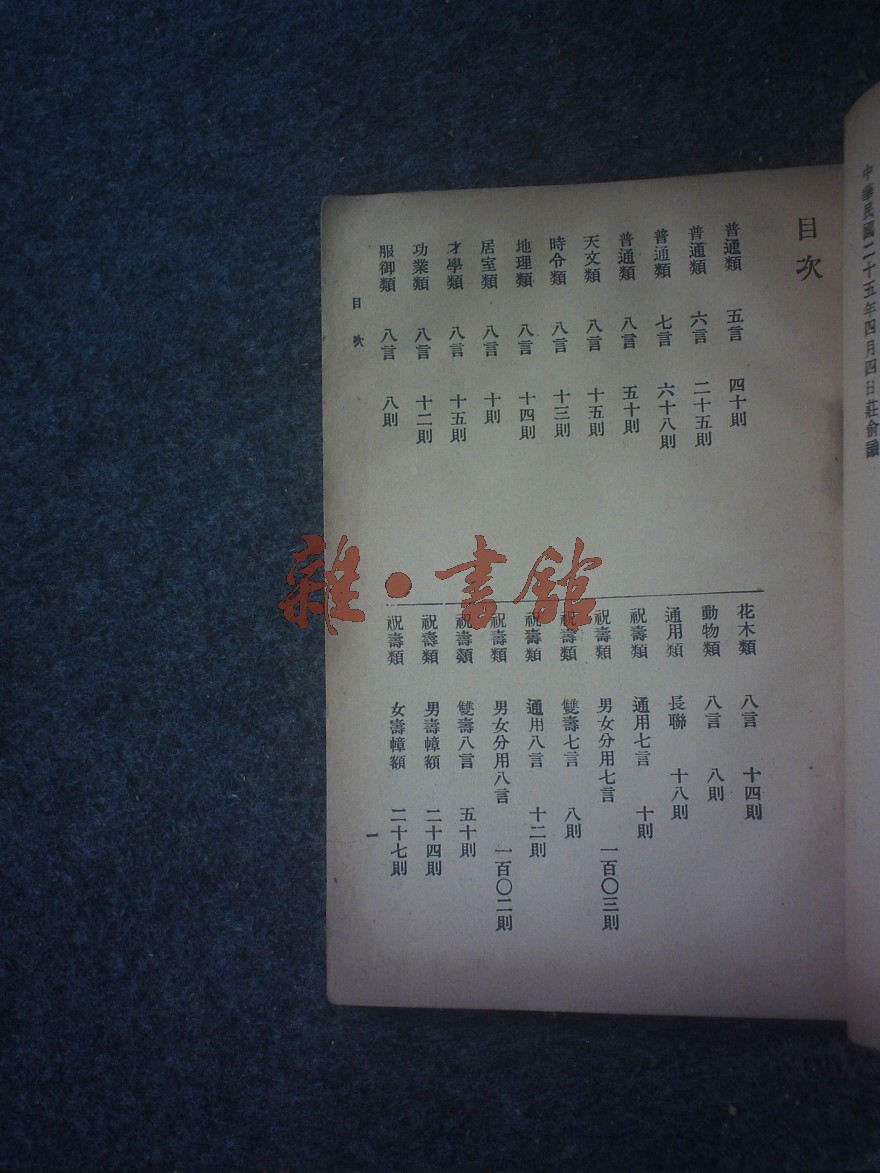 中華民國二十五年四月四日莊俞識
目次
普通類 五言 四十則
普通類 六言 二十五則
普通類 七言 六十八則
普通類 八言 五十則
天文類 八言 十五則
時令類 八言 十三則
地理類 八言 十四則
居室類 八言 十則
才學類 八言 十五則
功業類 八言 十二則
服御類 八言 八則
花木類 八言 十四則
動物類 八言 八則
通用類 長聯 十八則
祝壽類 通用七言 十則
祝壽類 男女分用七言 一百〇三則
祝壽類 雙壽七言 八則
祝壽類 通用八言 十二則
祝壽類 男女分用八言 一百〇二則
祝壽類 雙壽八言 五十則
祝壽類 男壽幛額 二十四則
祝壽類 女壽幛額 二十七則
目次
一
雜·書館